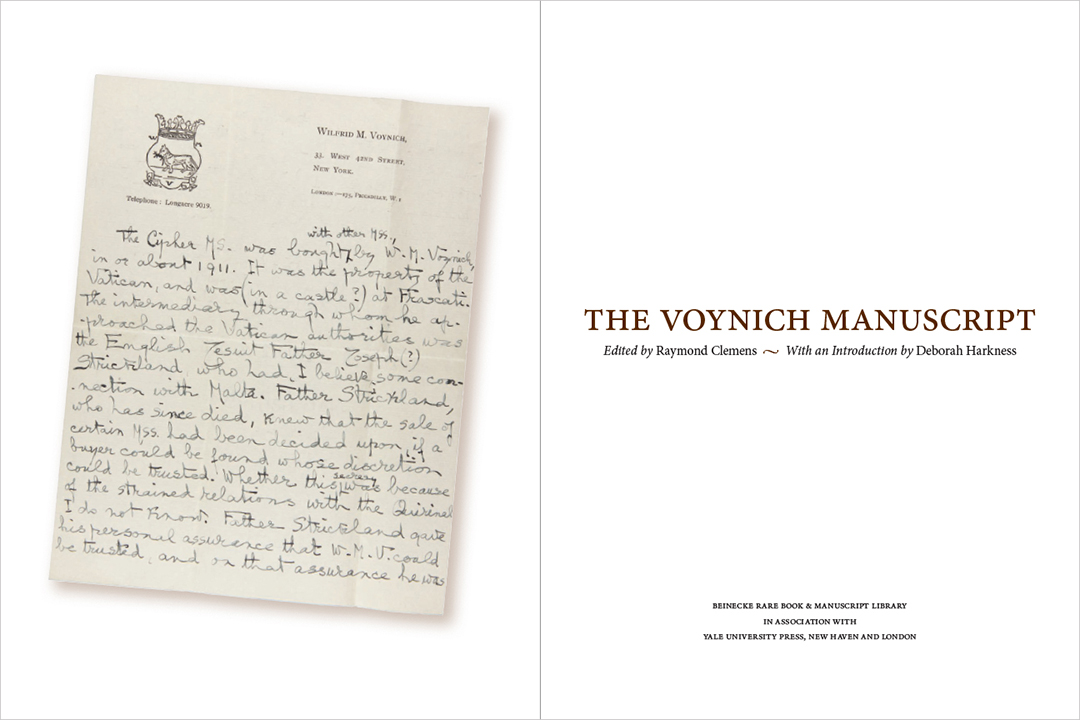 WILFRID M. VOYNICH,
33, WEST 42ND STREET,
NEW YORK.
LONDON :—175, PICCADILLY, W. 1
Telephone : Longacre 9019.
with other Mss.,
The Cipher MS. was bought by W. M. Voynich,
in or about 1911. It was the property of the
Vatican, and was (in a castle?) at Frascati.
The intermediary through whom he ap-
-proached the Vatican authorities was
the English Jesuit Father Joseph (?)
Strickland, who had, I believe, some con-
-nection with Malta. Father Strickland,
who has since died, knew that the sale of
certain Mss. had been decided upon, if a
buyer could be found whose discretion
could be trusted. Whether this secrecy was because
of the strained relations with the Quirinal
I do not know. Father Strickland gave
his personal assurance that W. M. V. could
be trusted, and on that assurance he was
THE VOYNICH MANUSCRIPT
Edited by Raymond Clemens ~ With an Introduction by Deborah Harkness
BEINECKE RARE BOOK & MANUSCRIPT LIBRARY
IN ASSOCIATION WITH
YALE UNIVERSITY PRESS, NEW HAVEN AND LONDON